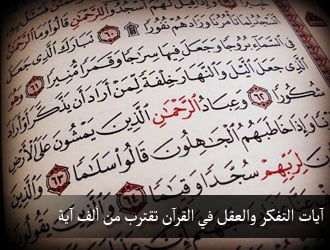 أَنَسْجُدُ لِمَا تَأْمُرُنَا وَزَادَهُمْ نُفُورًا ۩ ٦٠ تَبَارَكَ الَّذِي جَعَلَ
فِي السَّمَاءِ بُرُوجًا وَجَعَلَ فِيهَا سِرَاجًا وَقَمَرًا مُّنِيرًا ٦١ وَهُوَ
الَّذِي جَعَلَ اللَّيْلَ وَالنَّهَارَ خِلْفَةً لِّمَنْ أَرَادَ أَن يَذَّكَّرَ أَوْ أَرَادَ
شُكُورًا ٦٢ وَعِبَادُ الرَّحْمَٰنِ الَّذِينَ يَمْشُونَ عَلَى الْأَرْضِ
وَإِذَا خَاطَبَهُمُ الْجَاهِلُونَ قَالُوا سَلَامًا ٦٣ وَالَّذِينَ
لِرَبِّهِمْ سُجَّدًا وَقِيَامًا ٦٤ وَالَّذِينَ
آيات التفكر والعقل في القرآن تقترب من ألف آية